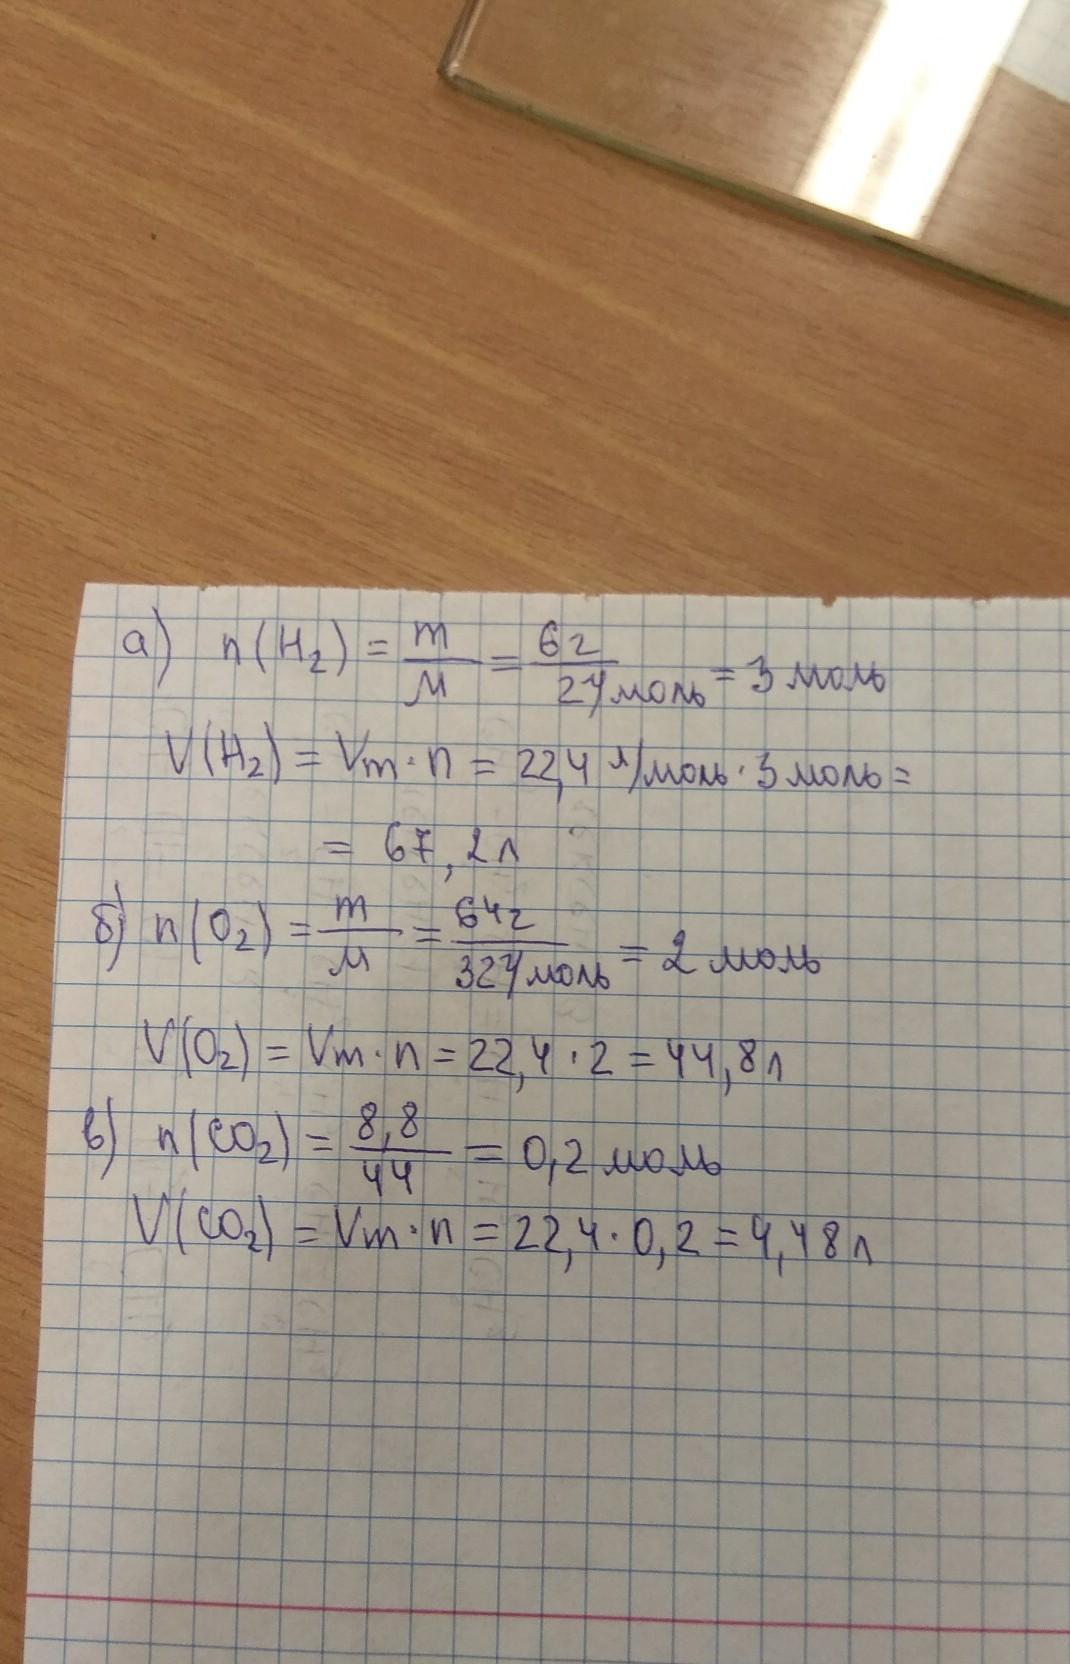 а) n(H₂) = m/M = 6г/2г/моль = 3 моль
V(H₂) = Vm·n = 22,4 л/моль·3 моль =
= 67,2л
б) n(O₂) = m/M = 64г/32г/моль = 2 моль
V(O₂) = Vm·n = 22,4·2 = 44,8л
в) n(CO₂) = 8,8/44 = 0,2 моль
V(CO₂) = Vm·n = 22,4·0,2 = 4,48л